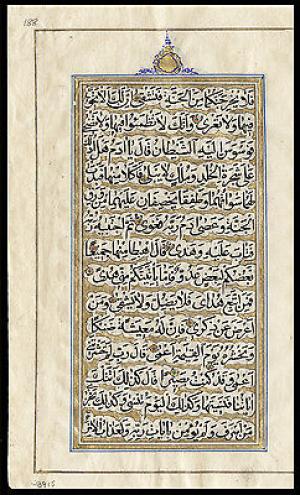 188
فَلَا يُخْرِجَنَّكُمَا مِنَ الْجَنَّةِ فَتَشْقَى اِنَّ لَكَ اَلَّا تَجُوعَ
فِيهَا وَلَا تَعْرَى وَاَنَّكَ لَا تَظْمَؤُا فِيهَا وَلَا تَضْحَى
فَوَسْوَسَ اِلَيْهِ الشَّيْطَانُ قَالَ يَا اٰدَمُ هَلْ اَدُلُّكَ
عَلَى شَجَرَةِ الْخُلْدِ وَمُلْكٍ لَا يَبْلَى فَاَكَلَا مِنْهَا فَبَدَتْ
لَهُمَا سَوْاٰتُهُمَا وَطَفِقَا يَخْصِفَانِ عَلَيْهِمَا مِنْ وَرَقِ
الْجَنَّةِ وَعَصَى اٰدَمُ رَبَّهُ فَغَوَى ثُمَّ اجْتَبَاهُ رَبُّهُ
فَتَابَ عَلَيْهِ وَهَدَى قَالَ اهْبِطَا مِنْهَا جَمِيعًا
بَعْضُكُمْ لِبَعْضٍ عَدُوٌّ فَاِمَّا يَاْتِيَنَّكُمْ مِنِّي هُدًى
فَمَنِ اتَّبَعَ هُدَايَ فَلَا يَضِلُّ وَلَا يَشْقَى وَمَنْ
اَعْرَضَ عَنْ ذِكْرِي فَاِنَّ لَهُ مَعِيشَةً ضَنْكًا
وَنَحْشُرُهُ يَوْمَ الْقِيٰمَةِ اَعْمَى قَالَ رَبِّ لِمَ حَشَرْتَنِي
اَعْمَى وَقَدْ كُنْتُ بَصِيرًا قَالَ كَذَلِكَ اَتَتْكَ
اٰيَاتُنَا فَنَسِيتَهَا وَكَذَلِكَ الْيَوْمَ تُنْسَى وَكَذَلِكَ نَجْزِي
مَنْ اَسْرَفَ وَلَمْ يُؤْمِنْ بِاٰيَاتِ رَبِّهِ وَلَعَذَابُ الْاٰخِرَةِ